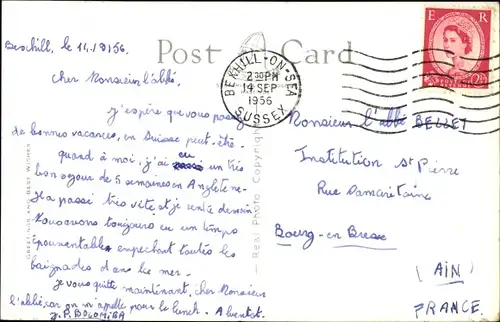 Bexhill, le 14/9/56.
Post Card
Cher Monsieur l'abbé,
J'espère que vous passez
de bonnes vacances, en Suisse peut-être.
quand à moi, j'ai eu un très
bon séjour de 5 semaines en Angleterre
Il a passé très vite et je rentre demain.
Nous avons toujours eu un temps
épouvantable empechant toutes les
baignades dans la mer.
je vous quitte maintenant, cher Monsieur
l'abbé, car on m'appelle pour le lunch. A bientot.
J. P.
GREETINGS AND BEST WISHES
Real Photo Copyright
BEXHILL-ON-SEA
2 30 PM
14 SEP
1956
SUSSEX
E R
Monsieur l'abbé BELLET
Institution St Pierre
Rue Samaritaine
Bourg-en-Bresse
(AIN)
FRANCE